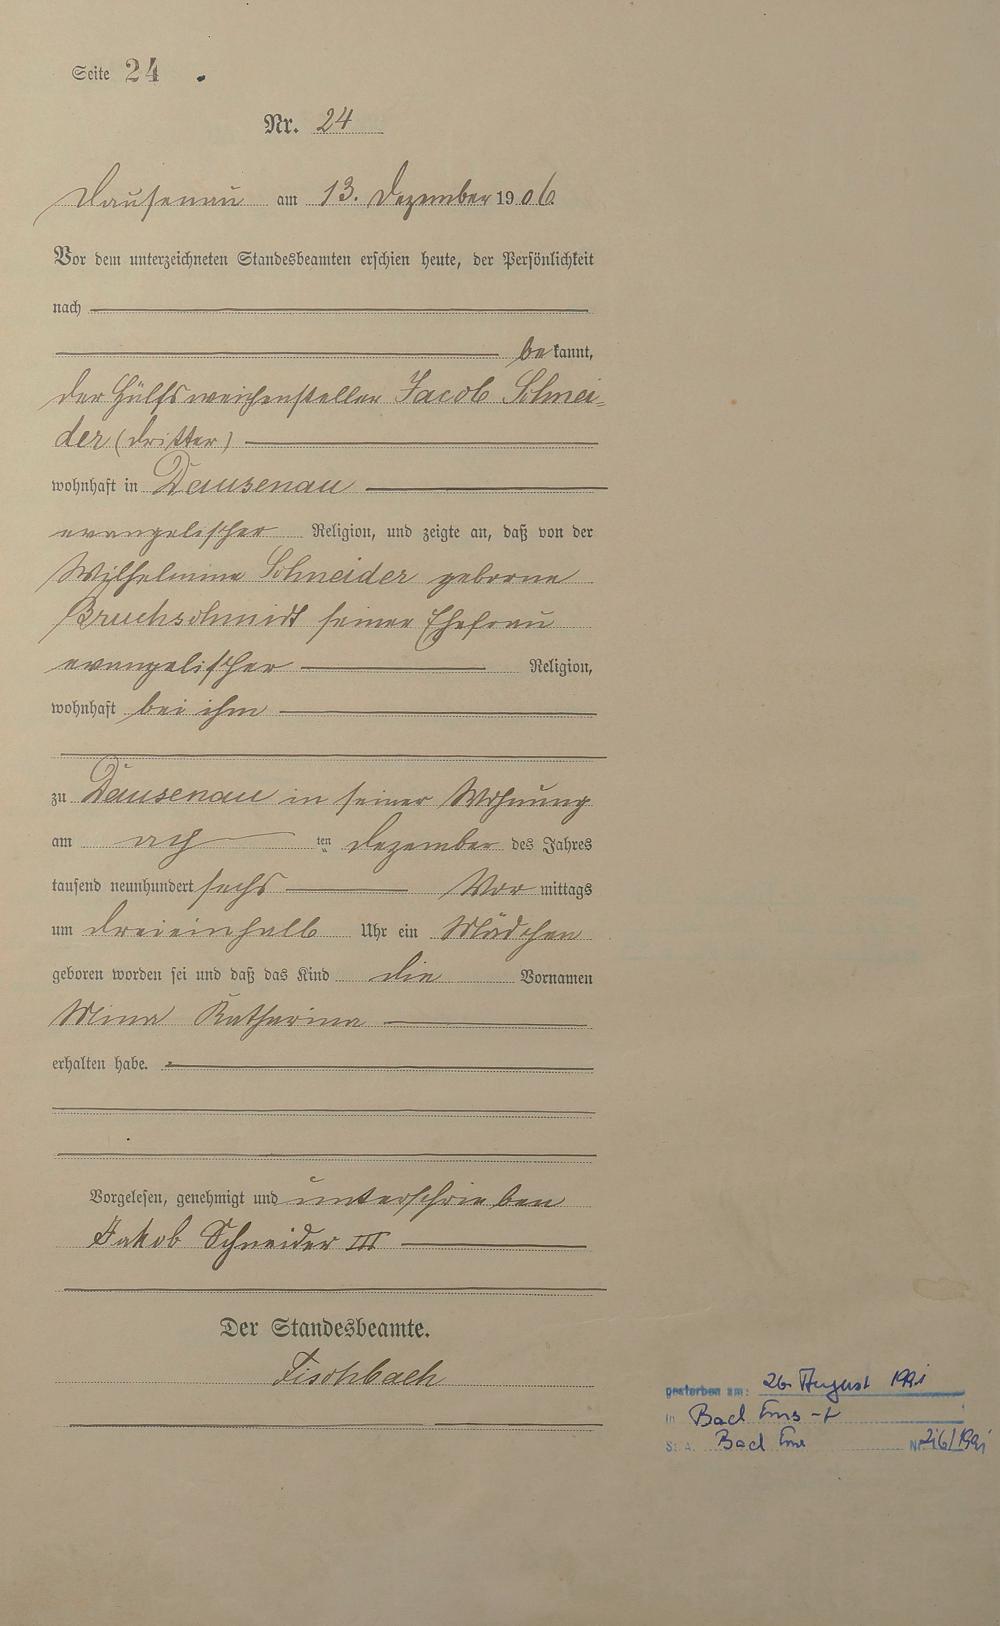 Seite 24
Nr. 24
Dausenau am 13. Dezember 1906
Vor dem unterzeichneten Standesbeamten erschien heute, der Persönlichkeit
nach
bekannt,
der Hülfsweichensteller Jacob Schnei-
der (dritter)
wohnhaft in Dausenau
evangelischer Religion, und zeigte an, daß von der
Wilhelmine Schneider geborne
Bruchschmidt seiner Ehefrau
evangelischer Religion,
wohnhaft bei ihm
zu Dausenau in seiner Wohnung
am acht ten Dezember des Jahres
tausend neunhundert sechs Vor mittags
um dreieinhalb Uhr ein Mädchen
geboren worden sei und daß das Kind die Vornamen
Mina Katharina
erhalten habe.
Vorgelesen, genehmigt und unterschrieben
Jakob Schneider III
Der Standesbeamte.
Fischbach
gestorben am: 26. August 1991
in Bad Ems
S: A. Bad Ems Nr.